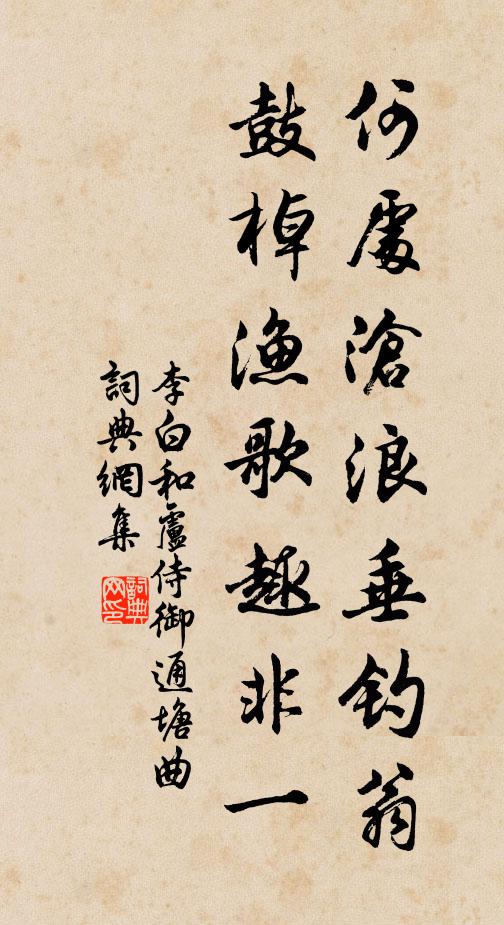 何處滄浪垂釣翁
鼓棹漁歌趣非一
李白和盧侍御通塘曲
詞典網集
詞典網印